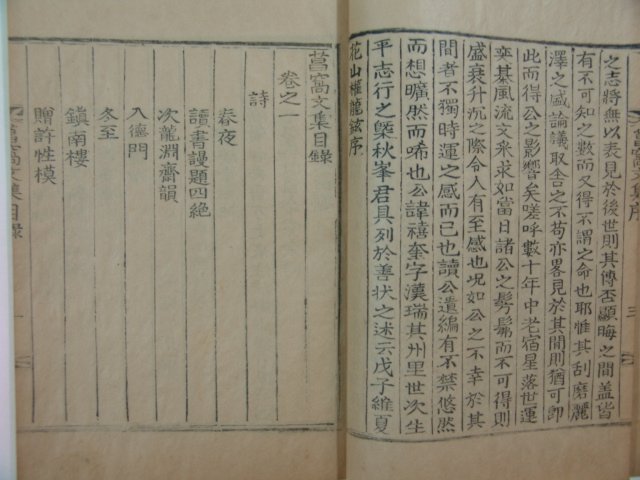 之志將無以表見於後世則其傳否顯晦之間盖皆
有不可知之數而又得不謂之命也耶惟其刮磨麗
澤之感論議取舍之不苟亦畧見於其間則猶可卽
此而得公之影響矣嗟呼數十年中老宿星落世運
奕棊風流文采求如當日諸公之髣髴而不可得則
盛衰升沉之際令人有至感也况如公之不幸於其
間者不獨時運之感而已也讀公遺編有不禁悠然
而想曠然而唏也公諱禧奎字漢瑞其州里世次生
平志行之槩秋峯君具列於善狀之述云戊子維夏
花山權龍鉉序
莒窩文集目錄
卷之一
詩
春夜
讀書謾題四絶
次龍淵齋韻
入德門
冬至
鎭南樓
贈許性模
莒窩文集目錄